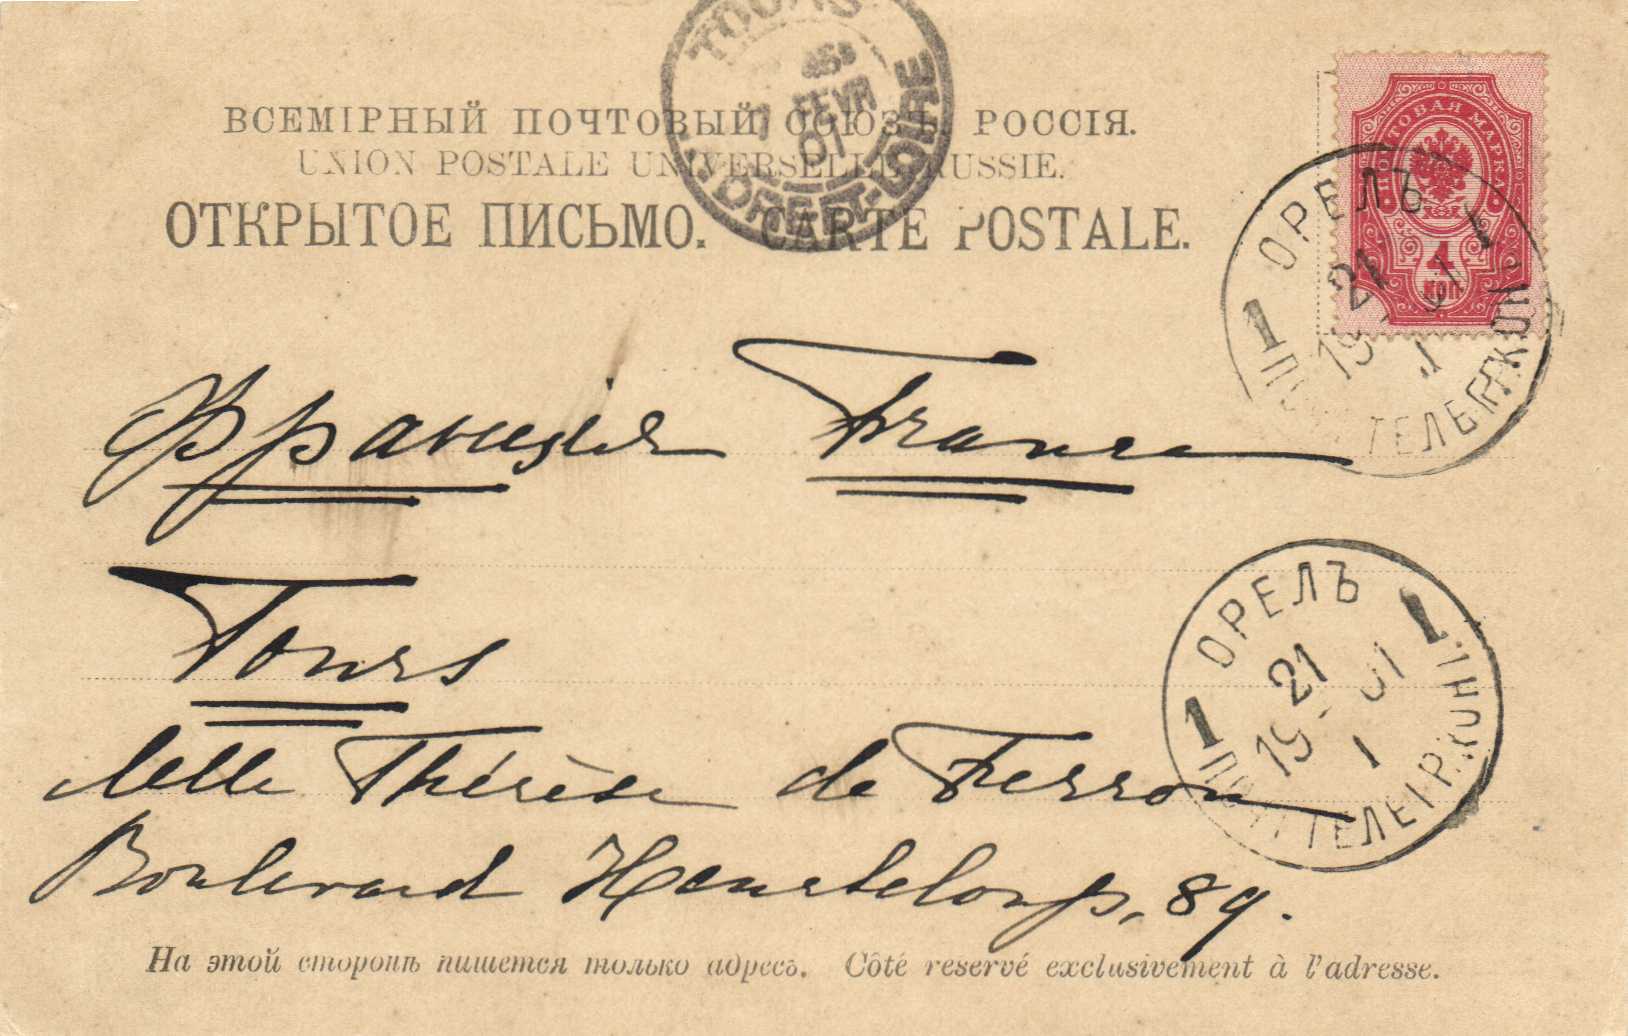 TOURS
7 FEVR
01
INDRE-ET-LOIRE
ВСЕМІРНЫЙ ПОЧТОВЫЙ СОЮЗЪ. РОССІЯ.
UNION POSTALE UNIVERSELLE. RUSSIE.
ОТКРЫТОЕ ПИСЬМО. CARTE POSTALE.
ПОЧТОВАЯ МАРКА
4
КОП
ОРЕЛЪ
1 21 1
19 01
1
ТЕЛЕГР. КОН
Франція France
Tours
Melle Thérèse de Ferron
Boulevard Heurteloup, 89.
ОРЕЛЪ
1 21 1
19 01
1
ПОЧТ ТЕЛЕГР. КОН
На этой сторонѣ пишется только адресъ. Côté reservé exclusivement à l'adresse.